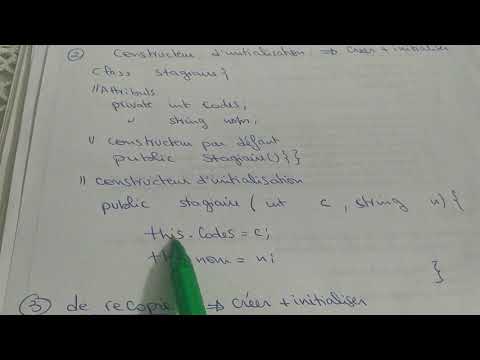 ② Constructeur d'initialisation ⇒ Créer + initialiser
Class stagiaire {
// Attributs
private int codes;
" string nom;
// constructeur par défaut
public stagiaire() { }
// constructeur d'initialisation
public stagiaire ( int c , string n) {
this.codes = c;
nom = n;
}
③ de recopie ⇒ créer + initialiser